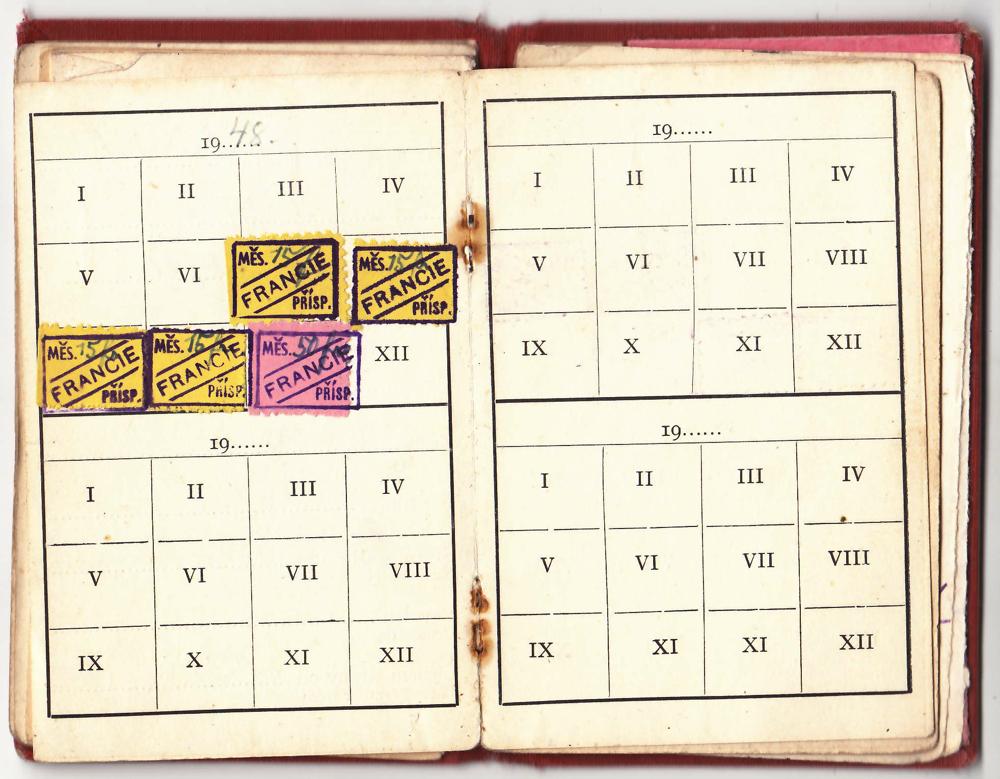 1948.
I II III IV
V VI
MĚS. 15
FRANCIE
PŘÍSP.
MĚS. 15
FRANCIE
PŘÍSP.
MĚS. 15
FRANCIE
PŘÍSP.
MĚS. 15
FRANCIE
PŘÍSP.
MĚS. 50
FRANCIE
PŘÍSP.
XII
19......
I II III IV
V VI VII VIII
IX X XI XII
19......
I II III IV
V VI VII VIII
IX X XI XII
19......
I II III IV
V VI VII VIII
IX XI XI XII